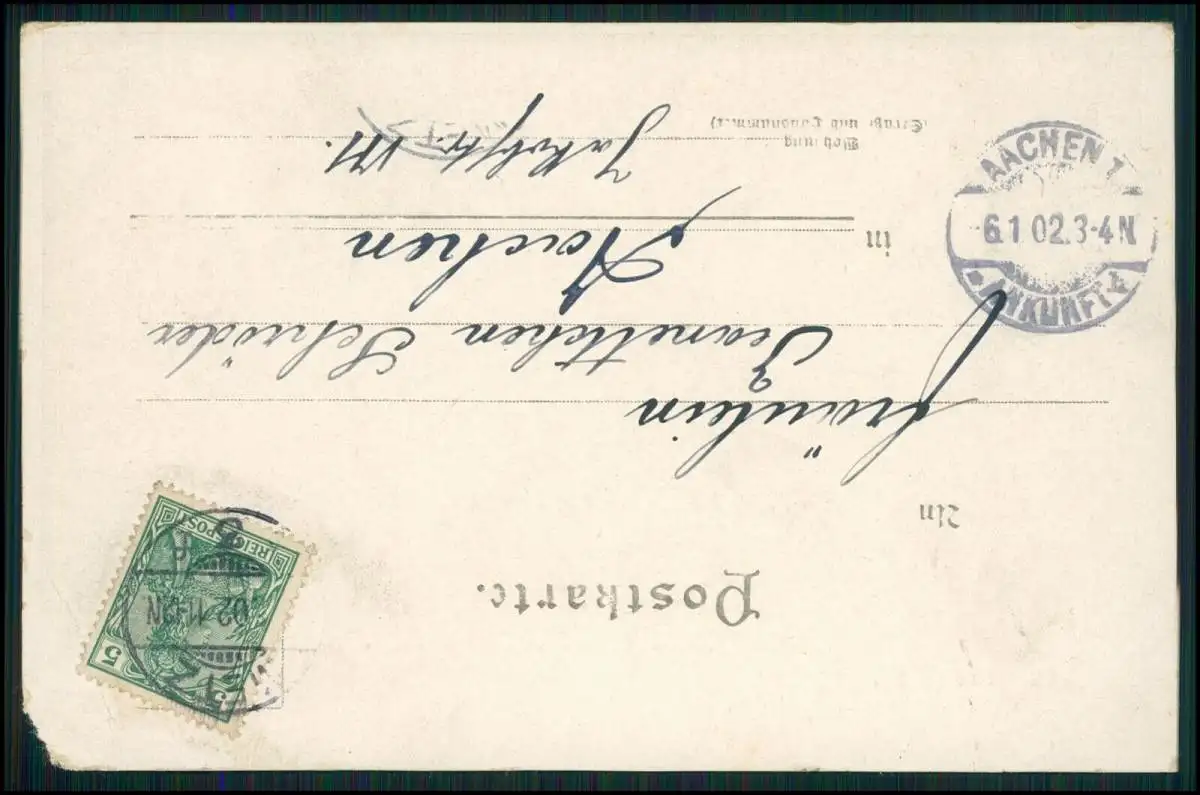 Postkarte.
An
Fräulein
Jeanettchen Schröder
in
Aachen
Wohnung
(Straße und Hausnummer)
Jakobstr. 171.
AACHEN 1
6.1.02.3-4N
ANKUNFT
REICHSPOST
5
5
02.11-12N